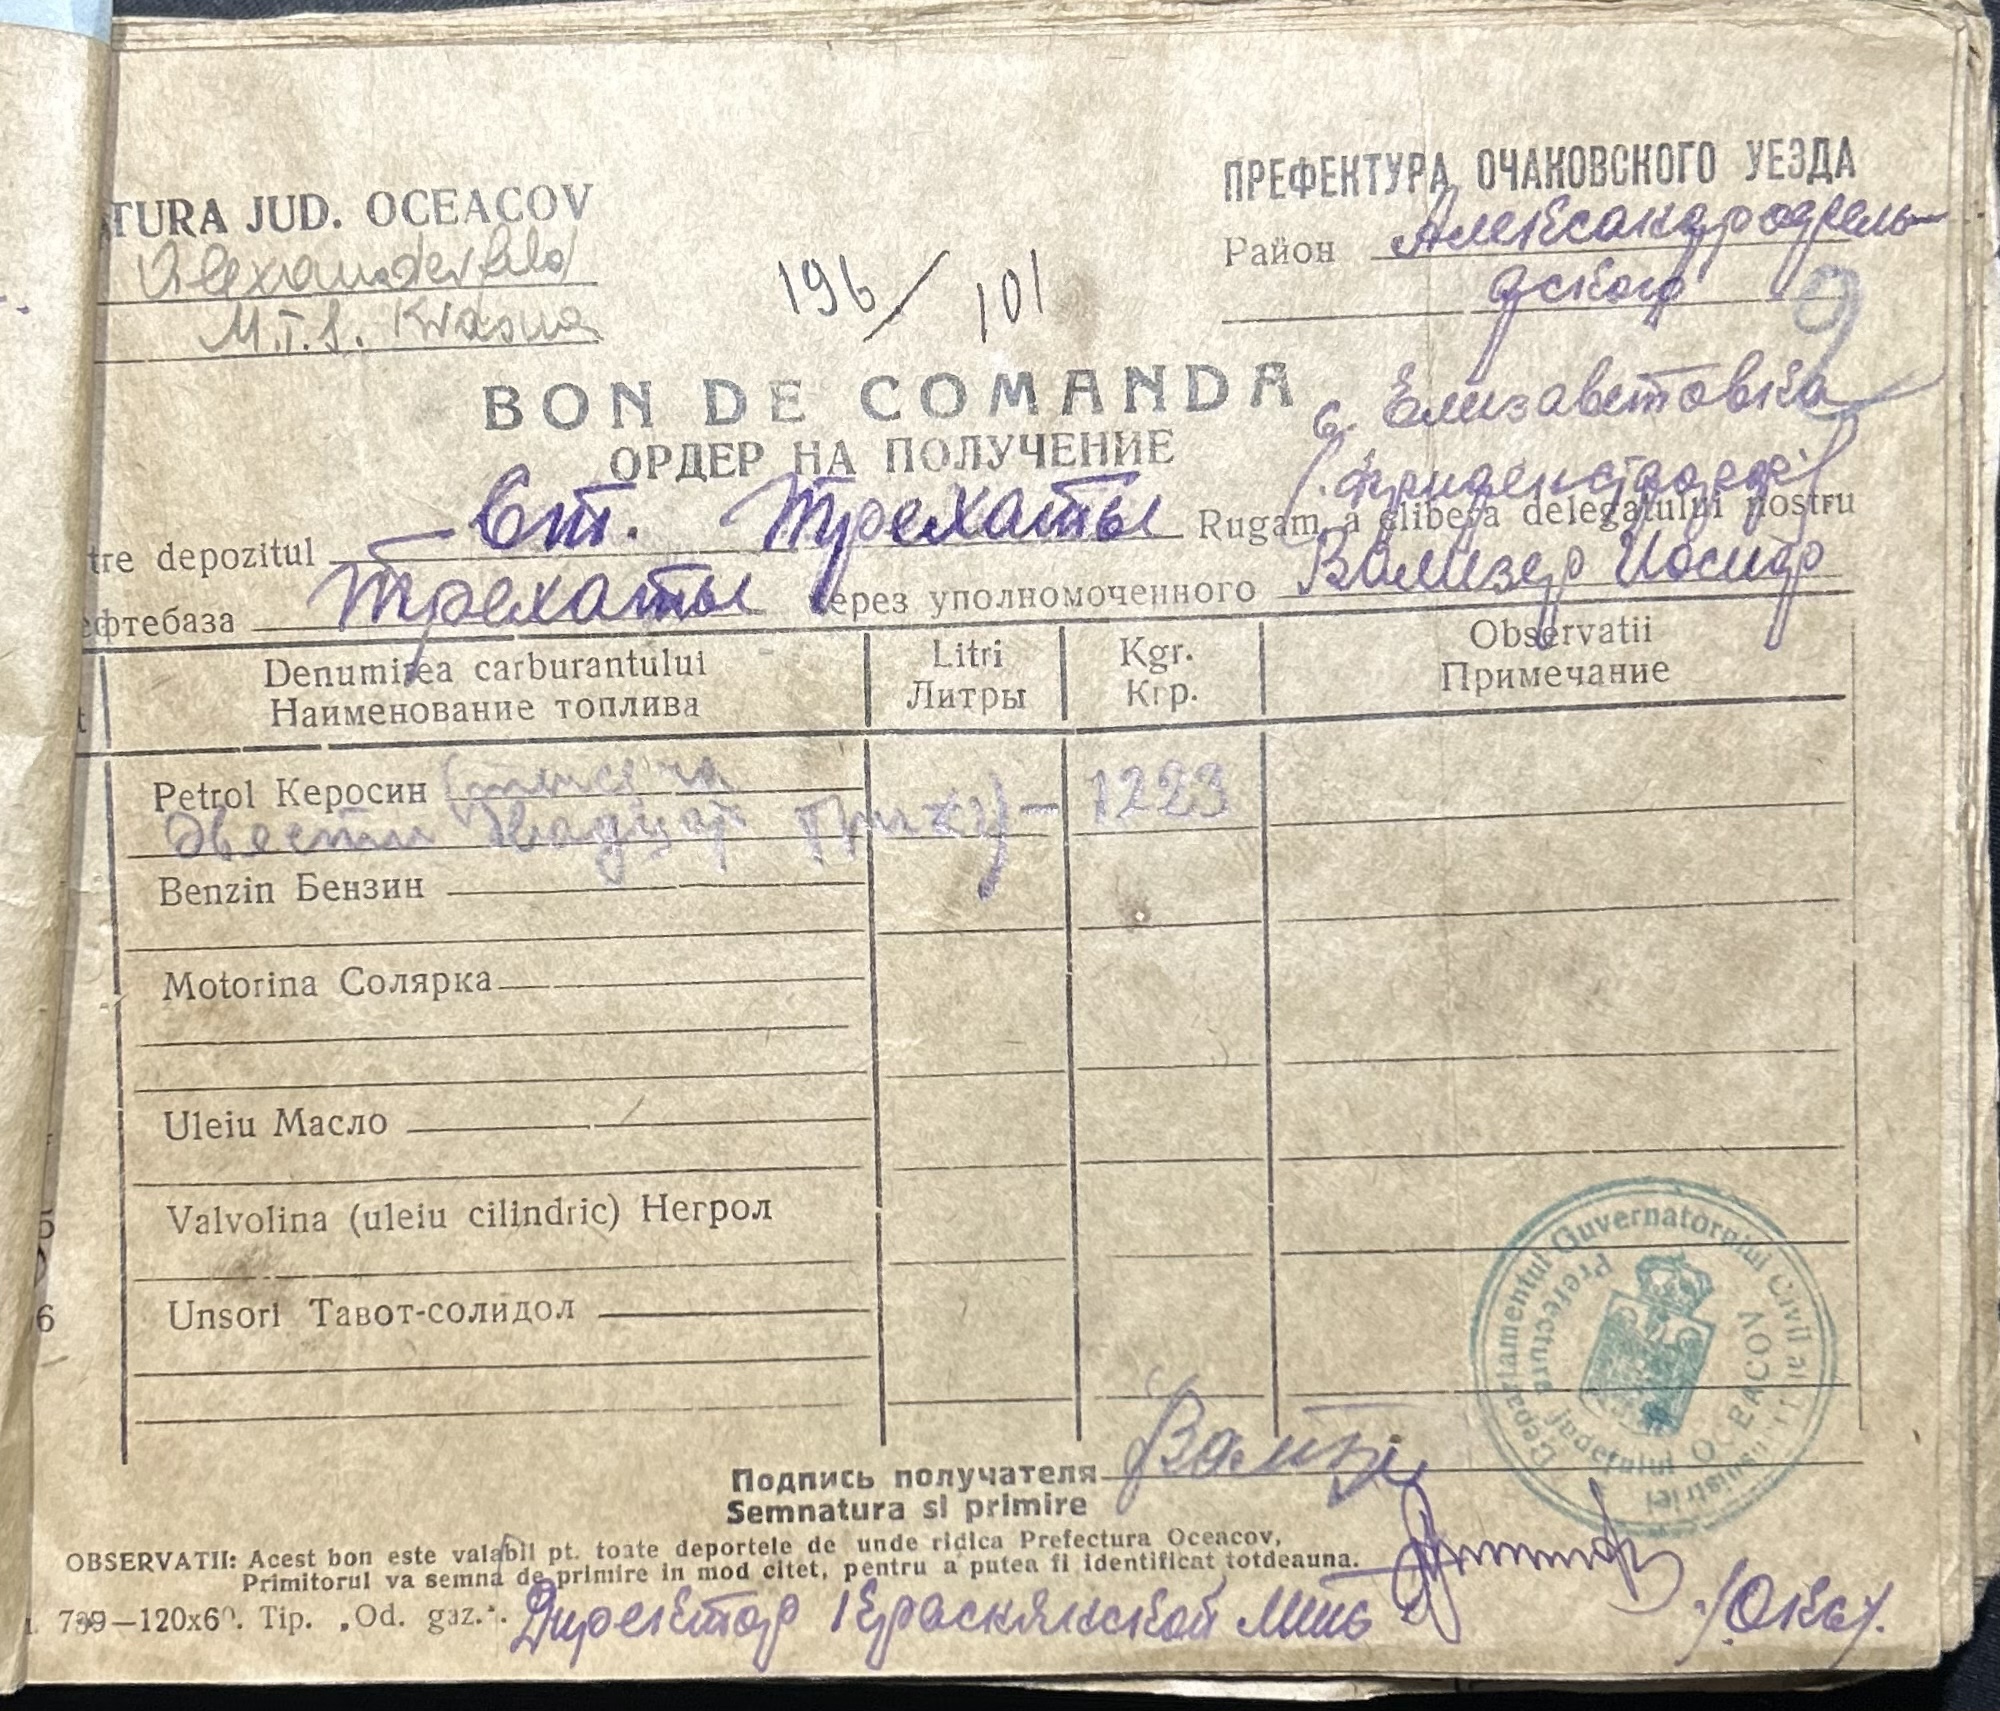 TURA JUD. OCEACOV
Alexanderfeld
M.T.S. Krasna
196/101
ПРЕФЕКТУРА ОЧАКОВСКОГО УЕЗДА
Район Александрофель-
дского
9
BON DE COMANDA
ОРДЕР НА ПОЛУЧЕНИЕ
с. Елизаветовка
tre depozitul Ст. Трехаты Rugam a elibera delegatului nostru
ефтебаза Трехаты через уполномоченного Вализер Иосиф
Denumirea carburantului Litri Kgr. Observatii
Наименование топлива Литры Кгр. Примечание
Petrol Керосин
Двести двадцат три кг) — 1223
Benzin Бензин
Motorina Солярка
Uleiu Масло
Valvolina (uleiu cilindric) Негрол
5
Unsori Тавот-солидол
6
Departamentul Guvernatorului Civil al Transnistriei
Prefectura județului OCEACOV
Подпись получателя
Semnatura si primire
OBSERVATII: Acest bon este valabil pt. toate deportele de unde ridica Prefectura Oceacov,
Primitorul va semna de primire in mod citet, pentru a putea fi identificat totdeauna.
739—120x60. Tip. „Od. gaz.".
Директор Краснянской мтс